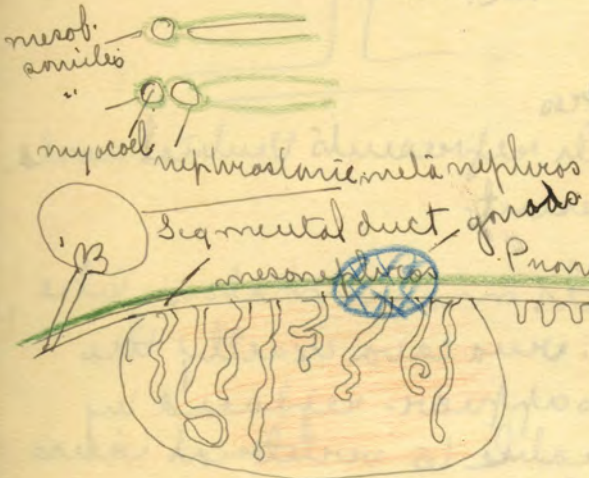 mesob.
somites
"
myocoel nephrostomic metanephros
Segmental duct gonads
mesonephros Pron